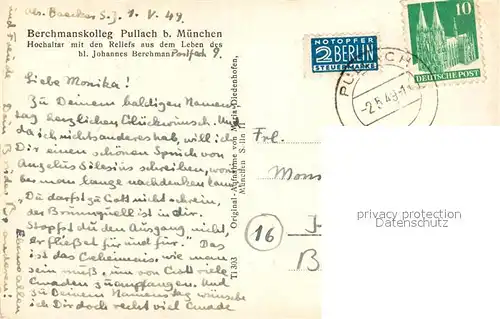 Als. Baecker S.J. 1. V. 49.
Berchmanskolleg Pullach b. München
Hochaltar mit den Reliefs aus dem Leben des
bl. Johannes Berchman Postfach 9.
Liebe Monika!
Zu Deinem baldigen Namens,
tag herzlichen Glückwunsch. Und
da ich nichts anderes hab, will ich
Dir einen schönen Spruch von
Angelus Silesius schreiben, wor
bei man lange nachdenken kann
"Du darfst zu Gott nicht schrein,
der Brunnquell ist in dir.
Stopfst du den Ausgang nicht,
er fließet für und für." Das
ist das Geheimnis, wie man
sein muß, um von Gott viele
Gnaden zu empfangen. Und
zu Deinem Namenstag wünsche
ich Dir doch recht viel Gnade
und Freude
Dein Br
Ebenso allen
anderen!
Original-Aufnahme von Maria Diedenhofen,
München-Solln II
TI 303
NOTOPFER
2 BERLIN
STEUERMARKE
10
DEUTSCHE POST
PULLACH
-2.5.49.-1
Frl.
Mons
16
B
privacy protection
watermark